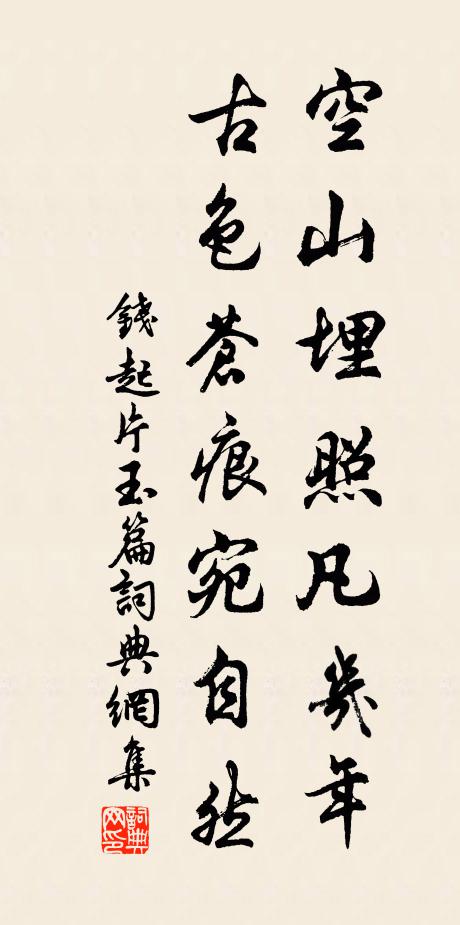 空山埋照凡幾年
古色蒼痕宛自然
錢起片玉篇詞典網集
詞典网印